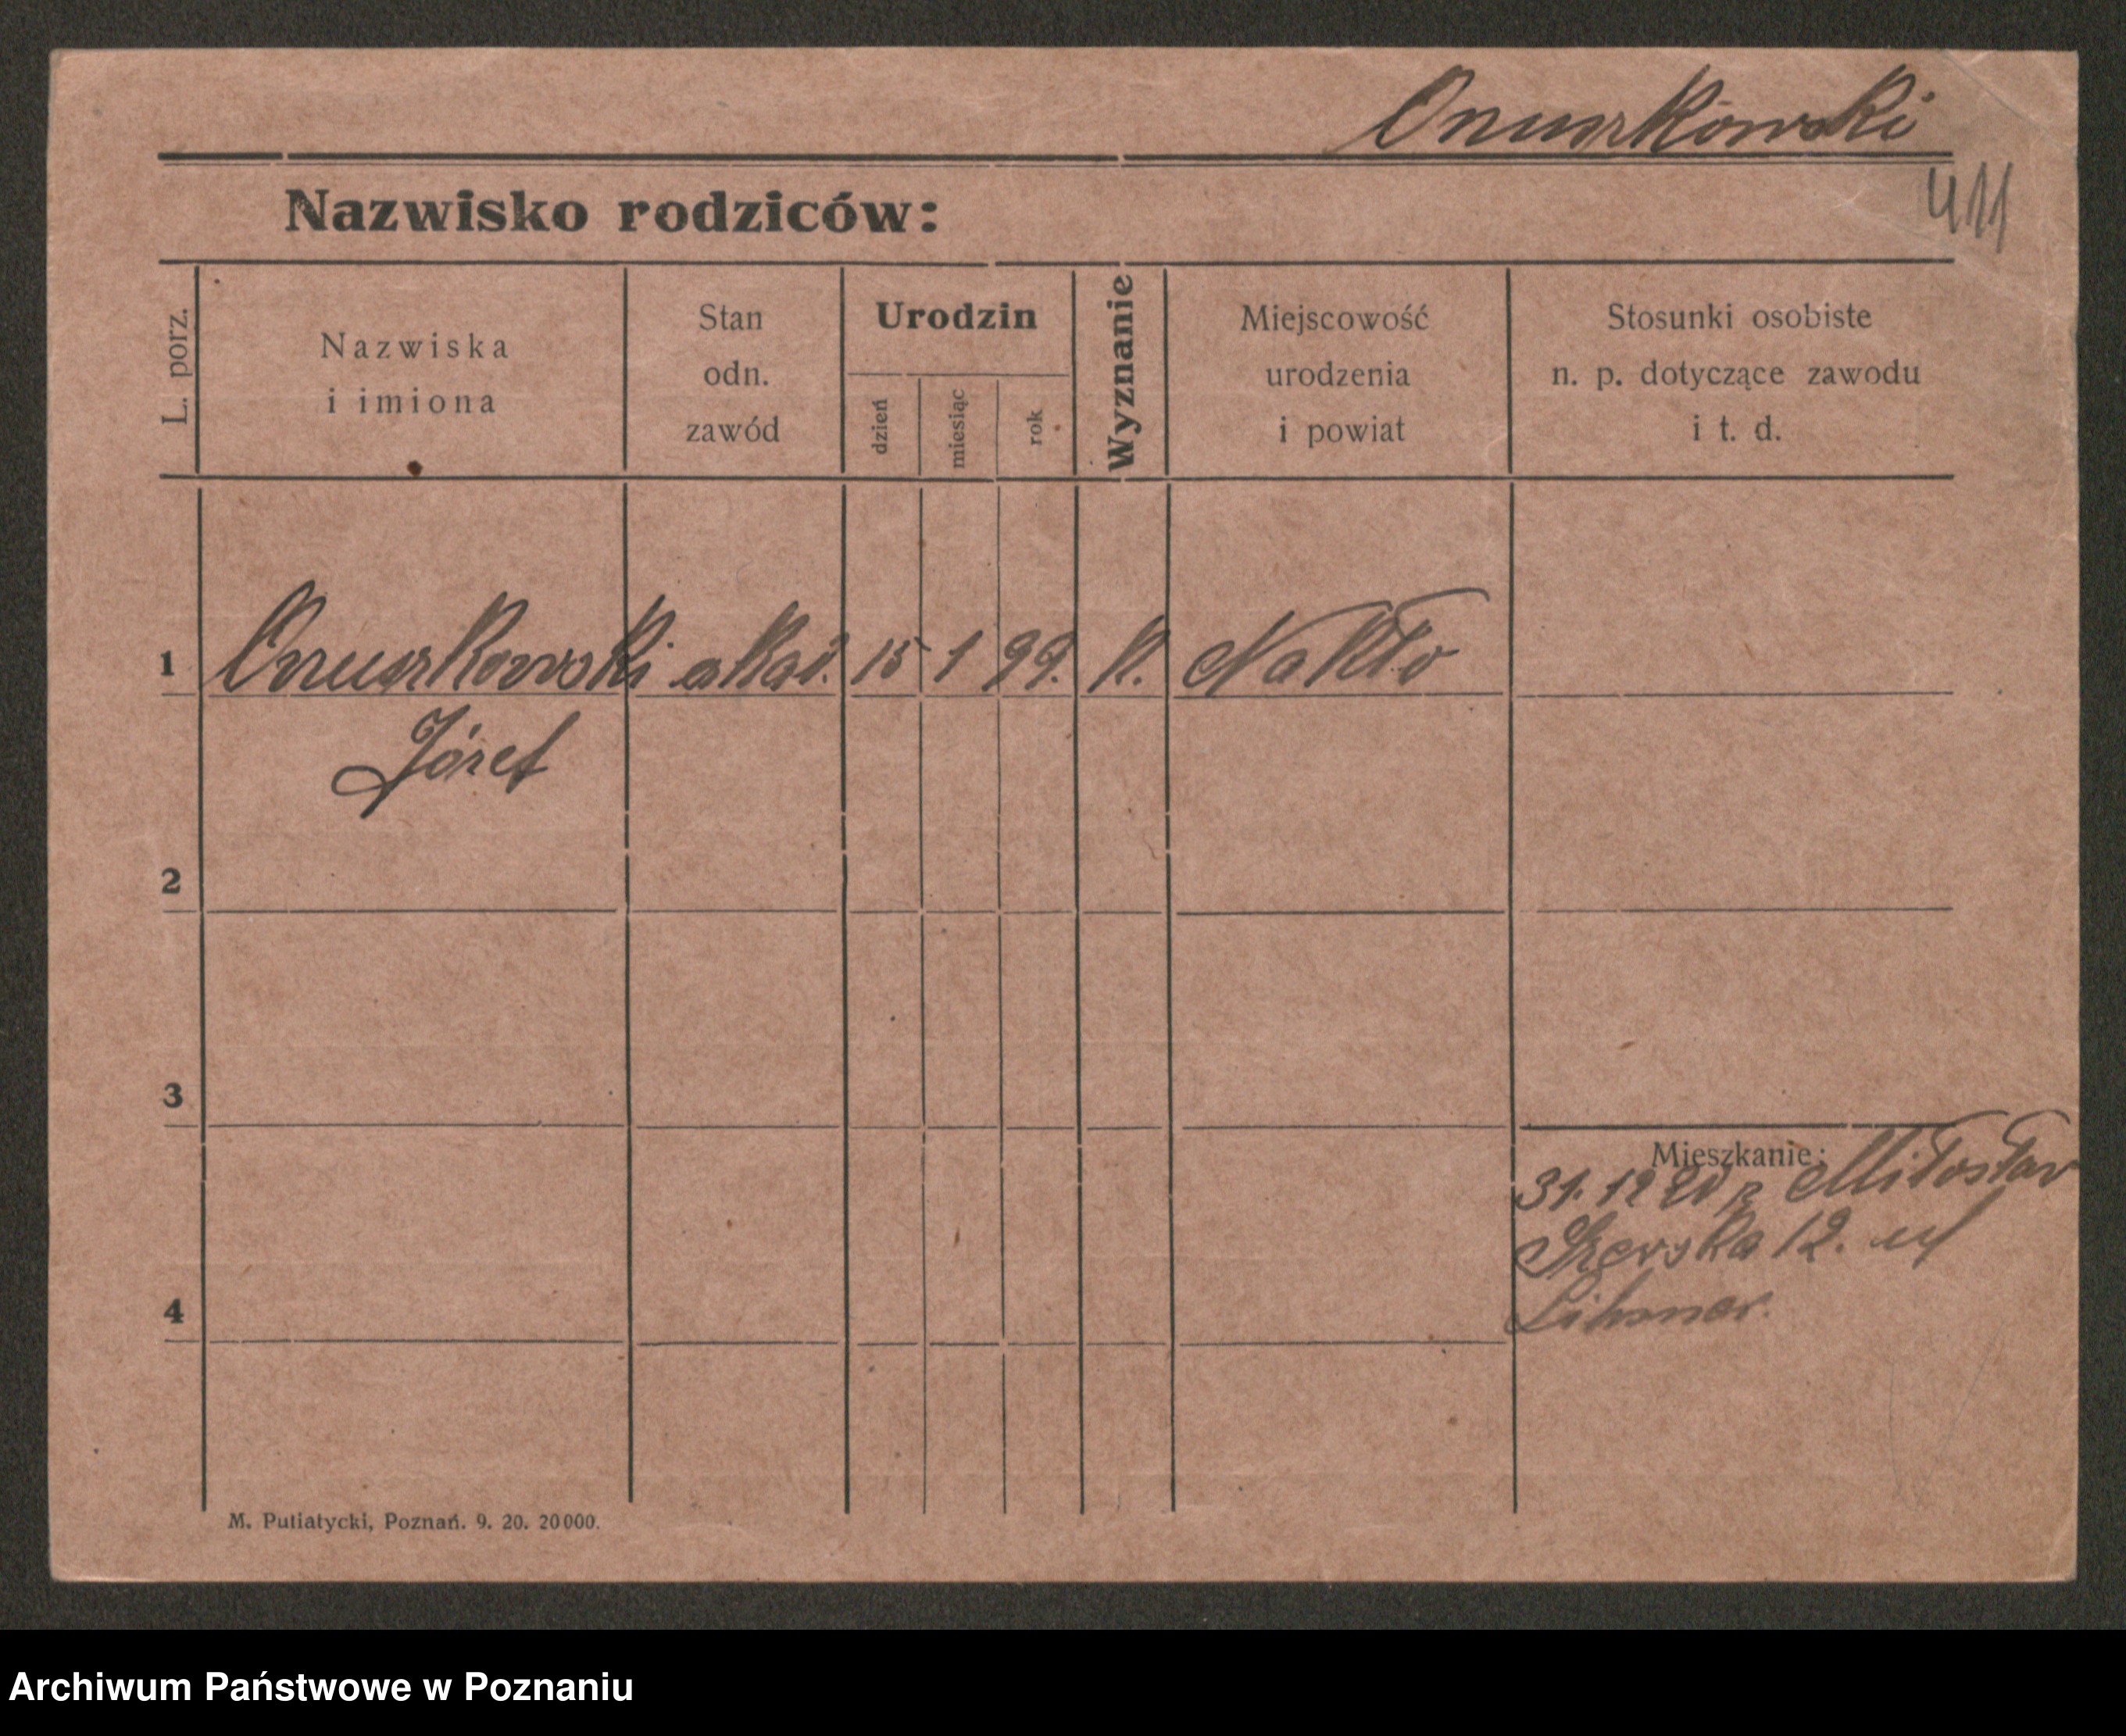 Onuszkowski
411
Nazwisko rodziców:
L. porz.
Nazwiska
i imiona
Stan
odn.
zawód
Urodzin
dzień
miesiąc
rok
Wyznanie
Miejscowość
urodzenia
i powiat
Stosunki osobiste
n. p. dotyczące zawodu
i t. d.
1 Onuszkowski akad. 15 1 99. k. Nakło
Józef
2
3
Mieszkanie:
31. 12 20 z Miłosław
Szewska 12.
4
M. Putiatycki, Poznań. 9. 20. 20000.
Archiwum Państwowe w Poznaniu